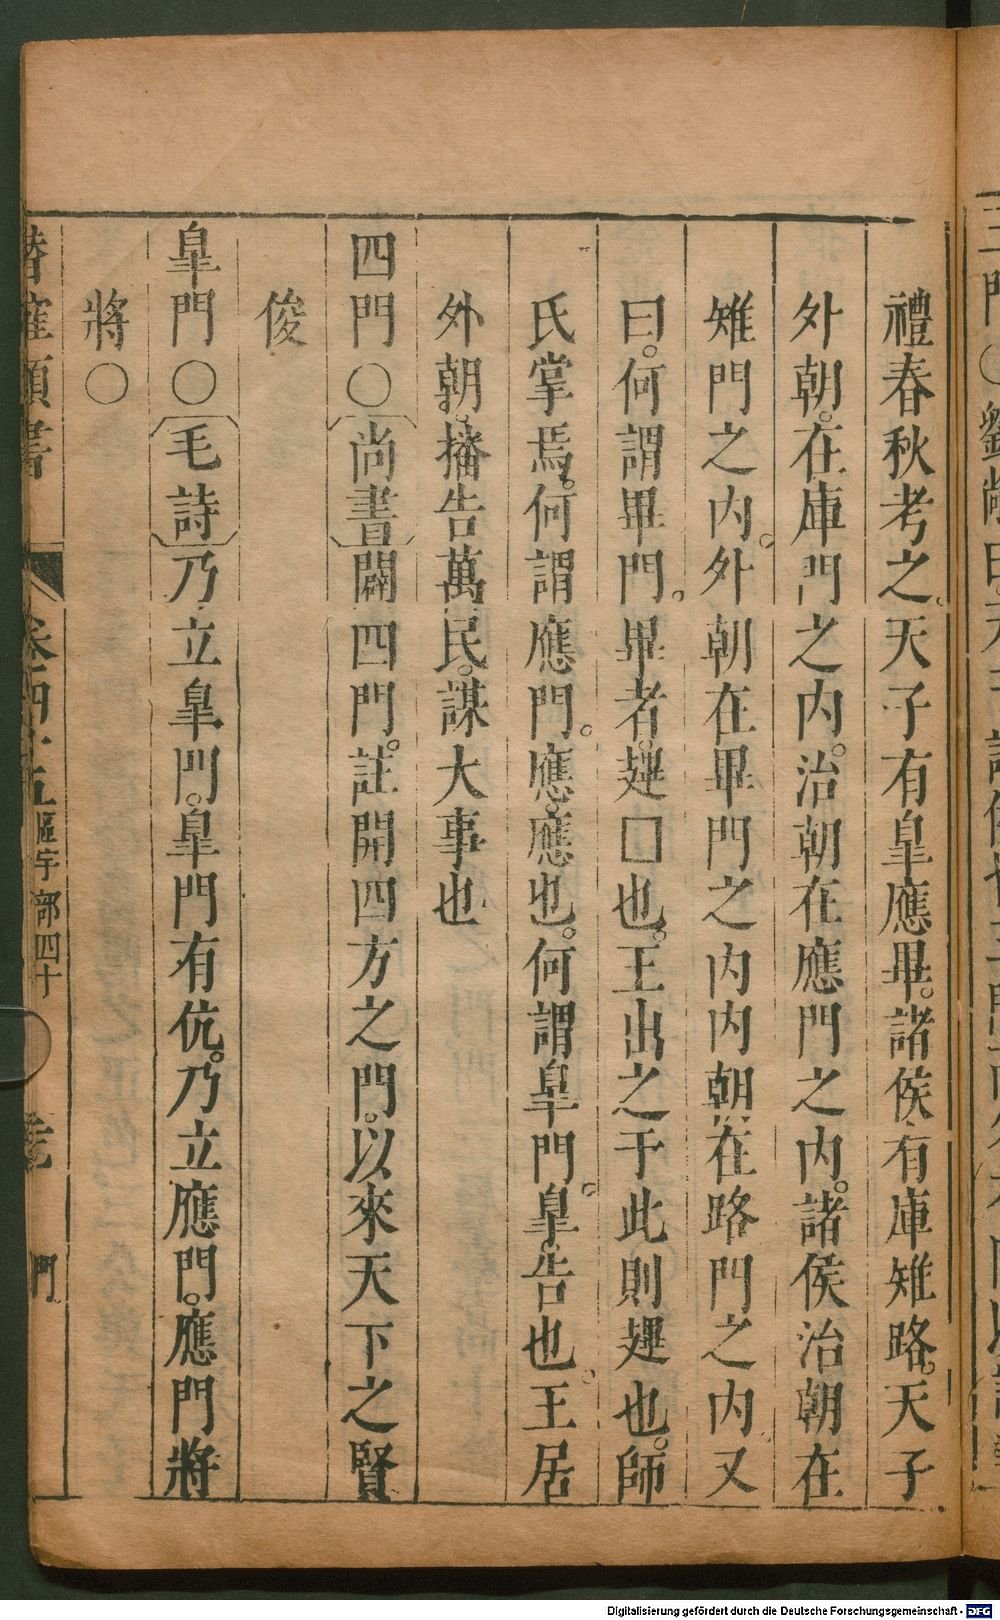 禮春秋考之。天子有皐應畢。諸侯有庫雉路。天子
外朝。在庫門之內。治朝在應門之內。諸侯治朝在
雉門之內。外朝在畢門之內內朝在路門之內又
曰。何謂畢門。畢者。趩□也。王出之于此則趩也。師
氏掌焉。何謂應門。應。應也。何謂皐門。皐。告也。王居
外朝。播告萬民。謀大事也
四門○尚書闢四門。註開四方之門。以來天下之賢
俊
皐門○毛詩乃立皐門。皐門有伉。乃立應門。應門將
將○
卷一百四十五 區宇部四十 門
Digitalisierung gefördert durch die Deutsche Forschungsgemeinschaft - DFG